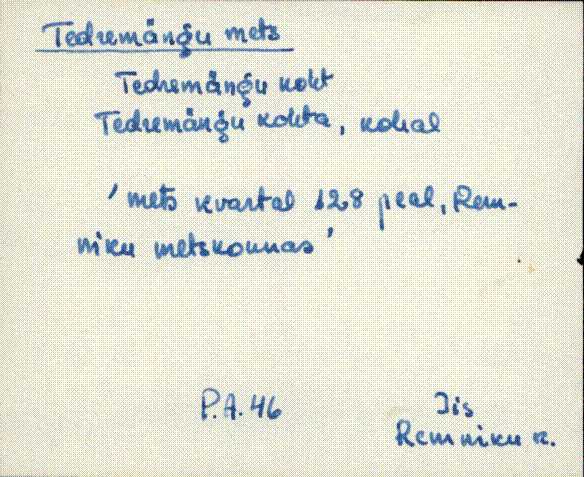 Tedremänģu mets
Tedremänģu koht
Tedremänģu kohta, kohal
'mets kvartal 128 peal, Rem-
niku metskonnas'
P.A. 46
Iis
Remniku k.